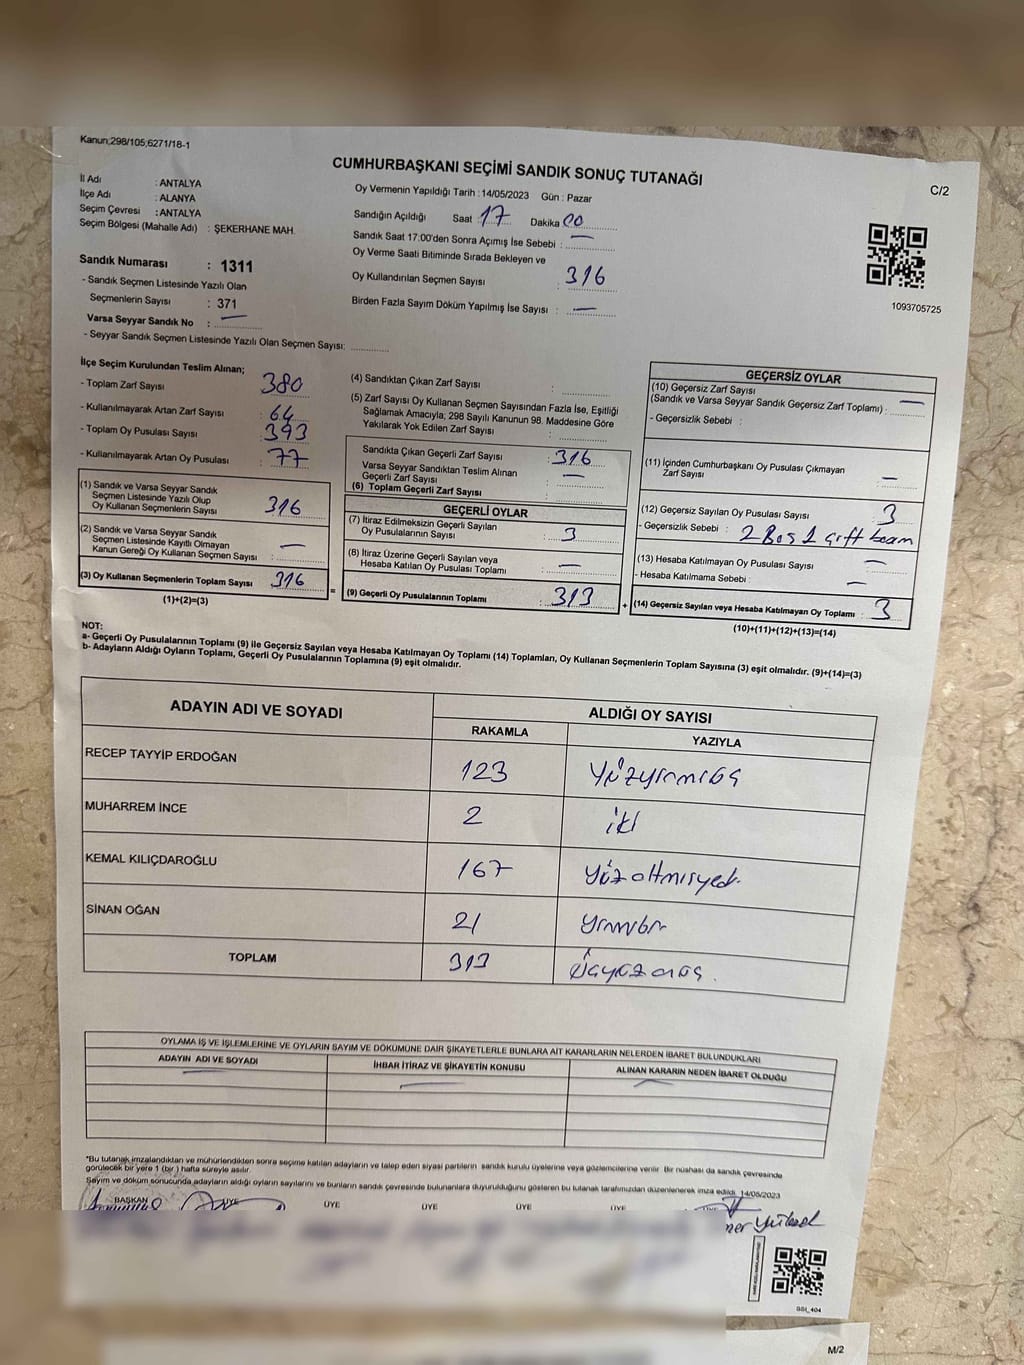 Kanun;298/105;6271/18-1
CUMHURBAŞKANI SEÇİMİ SANDIK SONUÇ TUTANAĞI
C/2
İl Adı : ANTALYA
İlçe Adı : ALANYA
Seçim Çevresi : ANTALYA
Seçim Bölgesi (Mahalle Adı) : ŞEKERHANE MAH.
Oy Vermenin Yapıldığı Tarih : 14/05/2023 Gün : Pazar
Sandığın Açıldığı Saat 17 Dakika 00
Sandık Saat 17:00'den Sonra Açımış İse Sebebi : —
Oy Verme Saati Bitiminde Sırada Bekleyen ve
Oy Kullandırılan Seçmen Sayısı : 316
Birden Fazla Sayım Döküm Yapılmış İse Sayısı : —
1093705725
Sandık Numarası : 1311
- Sandık Seçmen Listesinde Yazılı Olan
Seçmenlerin Sayısı : 371
Varsa Seyyar Sandık No : —
- Seyyar Sandık Seçmen Listesinde Yazılı Olan Seçmen Sayısı:
İlçe Seçim Kurulundan Teslim Alınan;
- Toplam Zarf Sayısı : 380
- Kullanılmayarak Artan Zarf Sayısı : 64
- Toplam Oy Pusulası Sayısı : 393
- Kullanılmayarak Artan Oy Pusulası : 77
(1) Sandık ve Varsa Seyyar Sandık
Seçmen Listesinde Yazılı Olup
Oy Kullanan Seçmenlerin Sayısı : 316
(2) Sandık ve Varsa Seyyar Sandık
Seçmen Listesinde Kayıtlı Olmayan
Kanun Gereği Oy Kullanan Seçmen Sayısı : —
(3) Oy Kullanan Seçmenlerin Toplam Sayısı : 316
(1)+(2)=(3)
=
(4) Sandıktan Çıkan Zarf Sayısı :
(5) Zarf Sayısı Oy Kullanan Seçmen Sayısından Fazla İse, Eşitliği
Sağlamak Amacıyla; 298 Sayılı Kanunun 98. Maddesine Göre
Yakılarak Yok Edilen Zarf Sayısı :
Sandıkta Çıkan Geçerli Zarf Sayısı : 316
Varsa Seyyar Sandıktan Teslim Alınan
Geçerli Zarf Sayısı : —
(6) Toplam Geçerli Zarf Sayısı :
GEÇERLİ OYLAR
(7) İtiraz Edilmeksizin Geçerli Sayılan
Oy Pusulalarının Sayısı : 3
(8) İtiraz Üzerine Geçerli Sayılan veya
Hesaba Katılan Oy Pusulası Toplamı : —
(9) Geçerli Oy Pusulalarının Toplamı : 313
+
GEÇERSİZ OYLAR
(10) Geçersiz Zarf Sayısı
(Sandık ve Varsa Seyyar Sandık Geçersiz Zarf Toplamı) : —
- Geçersizlik Sebebi :
(11) İçinden Cumhurbaşkanı Oy Pusulası Çıkmayan
Zarf Sayısı : —
(12) Geçersiz Sayılan Oy Pusulası Sayısı : 3
- Geçersizlik Sebebi : 2 Boş 1 çift
(13) Hesaba Katılmayan Oy Pusulası Sayısı : —
- Hesaba Katılmama Sebebi : —
(14) Geçersiz Sayılan veya Hesaba Katılmayan Oy Toplamı : 3
(10)+(11)+(12)+(13)=(14)
NOT:
a- Geçerli Oy Pusulalarının Toplamı (9) ile Geçersiz Sayılan veya Hesaba Katılmayan Oy Toplamı (14) Toplamları, Oy Kullanan Seçmenlerin Toplam Sayısına (3) eşit olmalıdır. (9)+(14)=(3)
b- Adayların Aldığı Oyların Toplamı, Geçerli Oy Pusulalarının Toplamına (9) eşit olmalıdır.
ADAYIN ADI VE SOYADI ALDIĞI OY SAYISI
RAKAMLA YAZIYLA
RECEP TAYYİP ERDOĞAN 123 yüzyirmiüç
MUHARREM İNCE 2 iki
KEMAL KILIÇDAROĞLU 167 yüzaltmışyedi
SİNAN OĞAN 21 yirmibir
TOPLAM 313 üçyüzonüç.
OYLAMA İŞ VE İŞLEMLERİNE VE OYLARIN SAYIM VE DÖKÜMÜNE DAİR ŞİKAYETLERLE BUNLARA AİT KARARLARIN NELERDEN İBARET BULUNDUKLARI
ADAYIN ADI VE SOYADI İHBAR İTİRAZ VE ŞİKAYETİN KONUSU ALINAN KARARIN NEDEN İBARET OLDUĞU
— — —
*Bu tutanak imzalandıktan ve mühürlendikten sonra seçime katılan adayların ve talep eden siyasi partilerin sandık kurulu üyelerine veya gözlemcilerine verilir. Bir nüshası da sandık çevresinde
görülecek bir yere 1 (bir) hafta süreyle asılır.
Sayım ve döküm sonucunda adayların aldığı oyların sayılarını ve bunların sandık çevresinde bulunanlara duyurulduğunu gösteren bu tutanak tarafımızdan düzenlenerek imza edildi. 14/05/2023
BAŞKAN ÜYE ÜYE ÜYE ÜYE ÜYE ÜYE
mer Yüksel
SSI_404
M/2